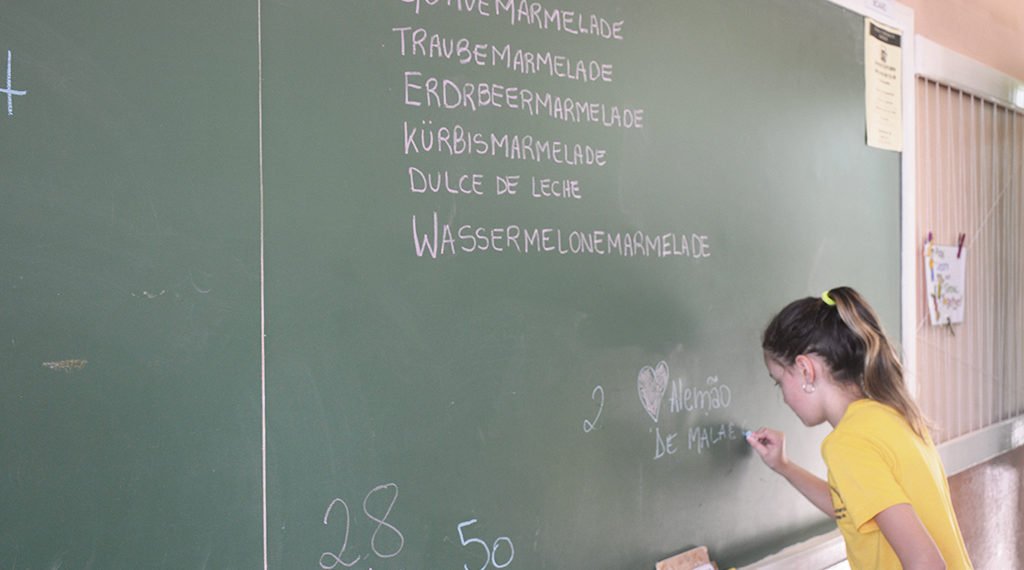 TRAUBEMARMELADE
ERDRBEERMARMELADE
KÜRBISMARMELADE
DULCE DE LECHE
WASSERMELONEMARMELADE
2 Alemão
DE MALAE
28 50